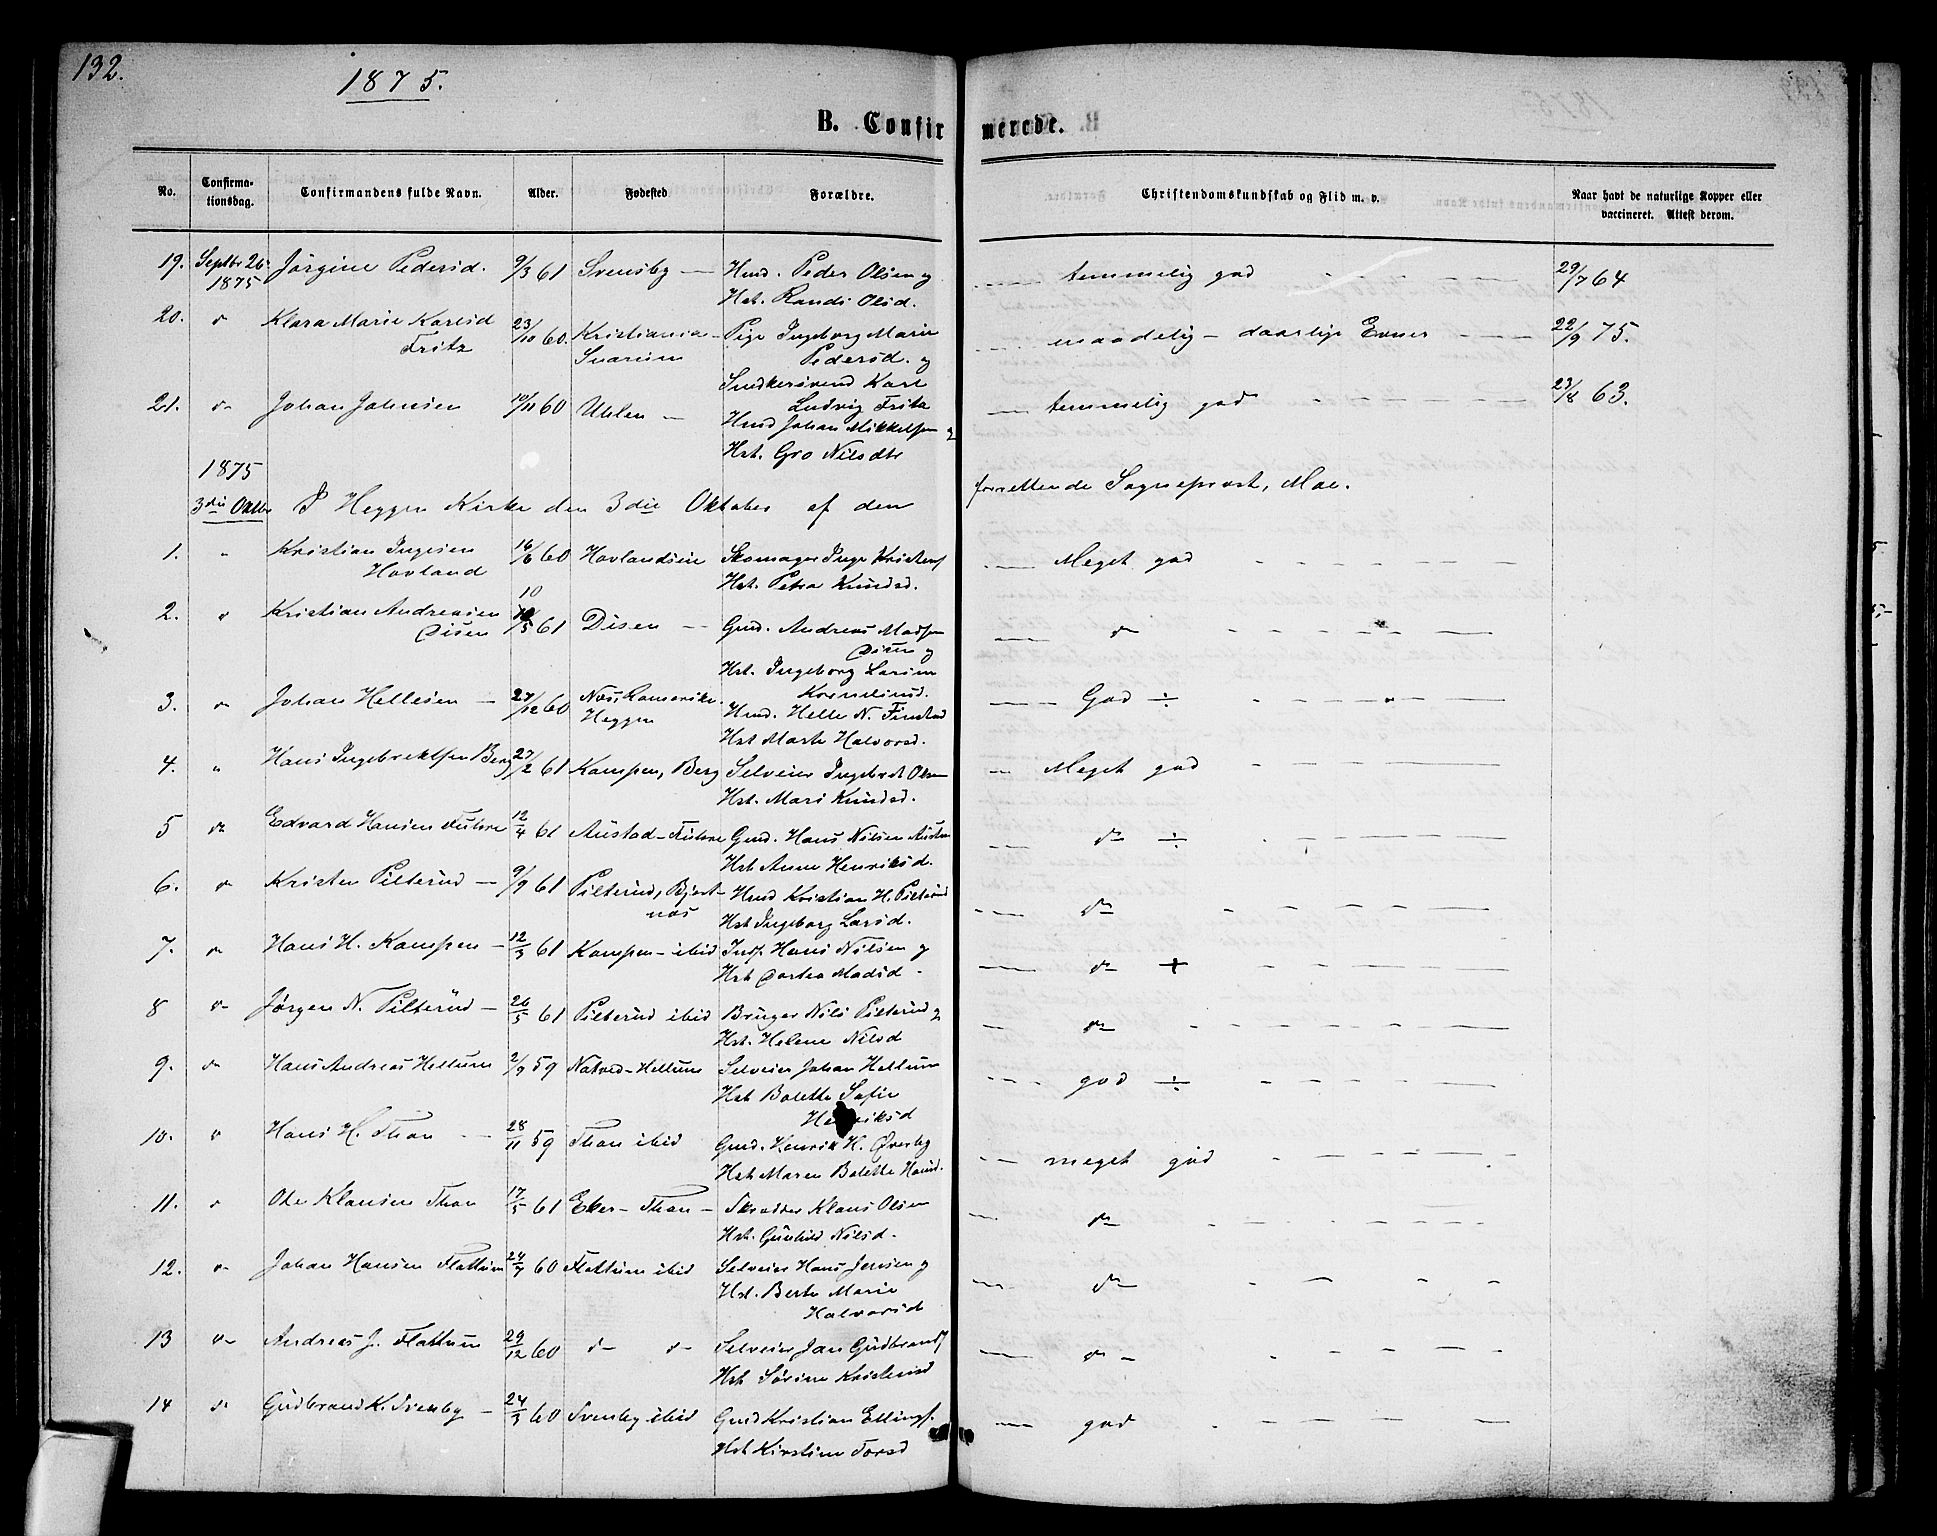 132.
1875.
B. Confirmerede.
No. Confirmationsdag. Confirmandens fulde Navn. Alder. Fødested Forældre. Christendomskundskab og Flid m. v. Naar havt de naturlige Kopper eller vaccineret. Attest derom.
19. Septbr 26 1875 Jørgine Pedersd. 9/3 61 Svensby — Hmd. Peder Olsen og temmelig god 29/7 64
Hst. Randi Olsd.
20. do Klara Marie Karlsd Fritz 23/10 60. Kristiania - Pige Ingeborg Marie Pedersd. og maadelig - daarlige Evner 22/9 75.
Snedkersvend Karl Ludvig Fritz
21. do Johan Johnsen 10/11 60 Uhlen — Hmd Johan Mikkelsen og temmelig god 23/8 63.
Hst. Gro Nilsdtr
1875
3die Oktbr I Heggen Kirke den 3die Oktober af den forrettende Sogneprest, Moe.
1. " Kristian Ingesen Hovland 16/6 60 Hovlandseie Skomager Inge Kristens Meget god
Hst. Petra Knudsd.
2. " Kristian Andreasen Disen 10/5 61 Disen — Gmd. Andreas Madsen Disen og do
Hst. Ingeborg Larine
3. do Johan Hellesen — 27/12 60 Næs, Romerike. Heggen Hmd. Helle N. Finstad God ÷
Hst Marte Halvorsd.
4. " Hans Ingebrektsen Berg 27/2 61 Kampen, Berg Selveier Ingebrdt Olsen Meget god
Hst. Mari Knudsd.
5 do Edvard Hansen Fuhre 12/4 61 Austad - Fuhre Gmd. Hans Nilsen do ÷
Hst Anne Henriksd.
6. do Kristen Pilterud — 9/9 61 Pilterud, Bjertnæs Hmd Kristian H. Pilterud do
Hst Ingeborg Larsd.
7. do Hans H. Kampen — 12/3 61 Kampen - ibid Hans Nilsen og do +
Hst Dortea Madsd -
8 do Jørgen N. Pilterud — 26/5 61 Pilterud ibid Bruger Nils Pilterud og do
Hst. Helene Nilsd
9. do Hans Andreas Hellum 2/9 59 Natvedt - Hellum Selveier Johan Hellum god ÷
Hst Bolette Sofie Henriksd
10. do Hans H. Thon — 28/11 59 Thon ibid Gmd. Henrik H. Øverby meget god
Hst Maren Bolette Hansd.
11. do Ole Klausen Thon 17/5 61 Eker - Thon — Skrædder Klaus Olsen do
Hst. Gunhild Nilsd.
12. do Johan Hansen Flattum 24/7 60 Flattum ibid Selveier Hans Jensen og do
Hst. Berte Marie Halvorsd
13 do Andreas J. Flattum 29/12 60 do do Selveier Jan Gudbrands do -
Hst Sørine Kristensd
14 do Gudbrand K. Svenby — 24/3 60 Svenby ibid Gmd Kristian Ellings. god
Hst Kirstine Torsd